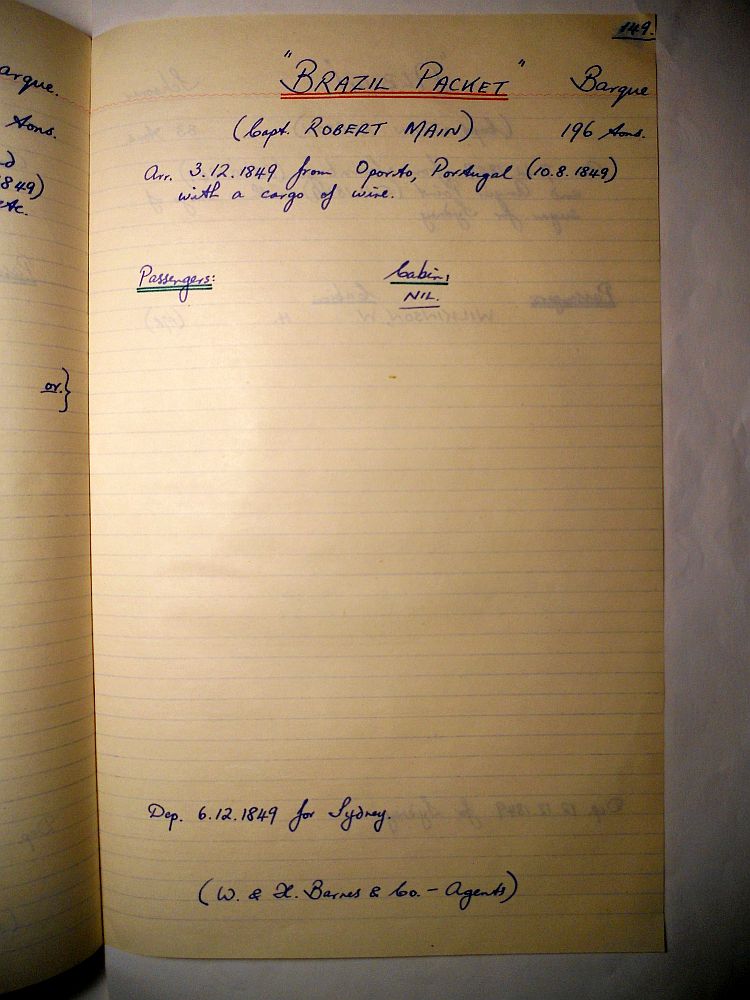 149.
"BRAZIL PACKET" Barque
(Capt. ROBERT MAIN) 196 tons.
Arr. 3.12.1849 from Oporto, Portugal (10.8.1849)
with a cargo of wine.
Passengers: Cabin:
NIL.
Dep. 6.12.1849 for Sydney.
(W. & H. Barnes & Co. - Agents)
arque.
tons.
849)
etc.
or.}